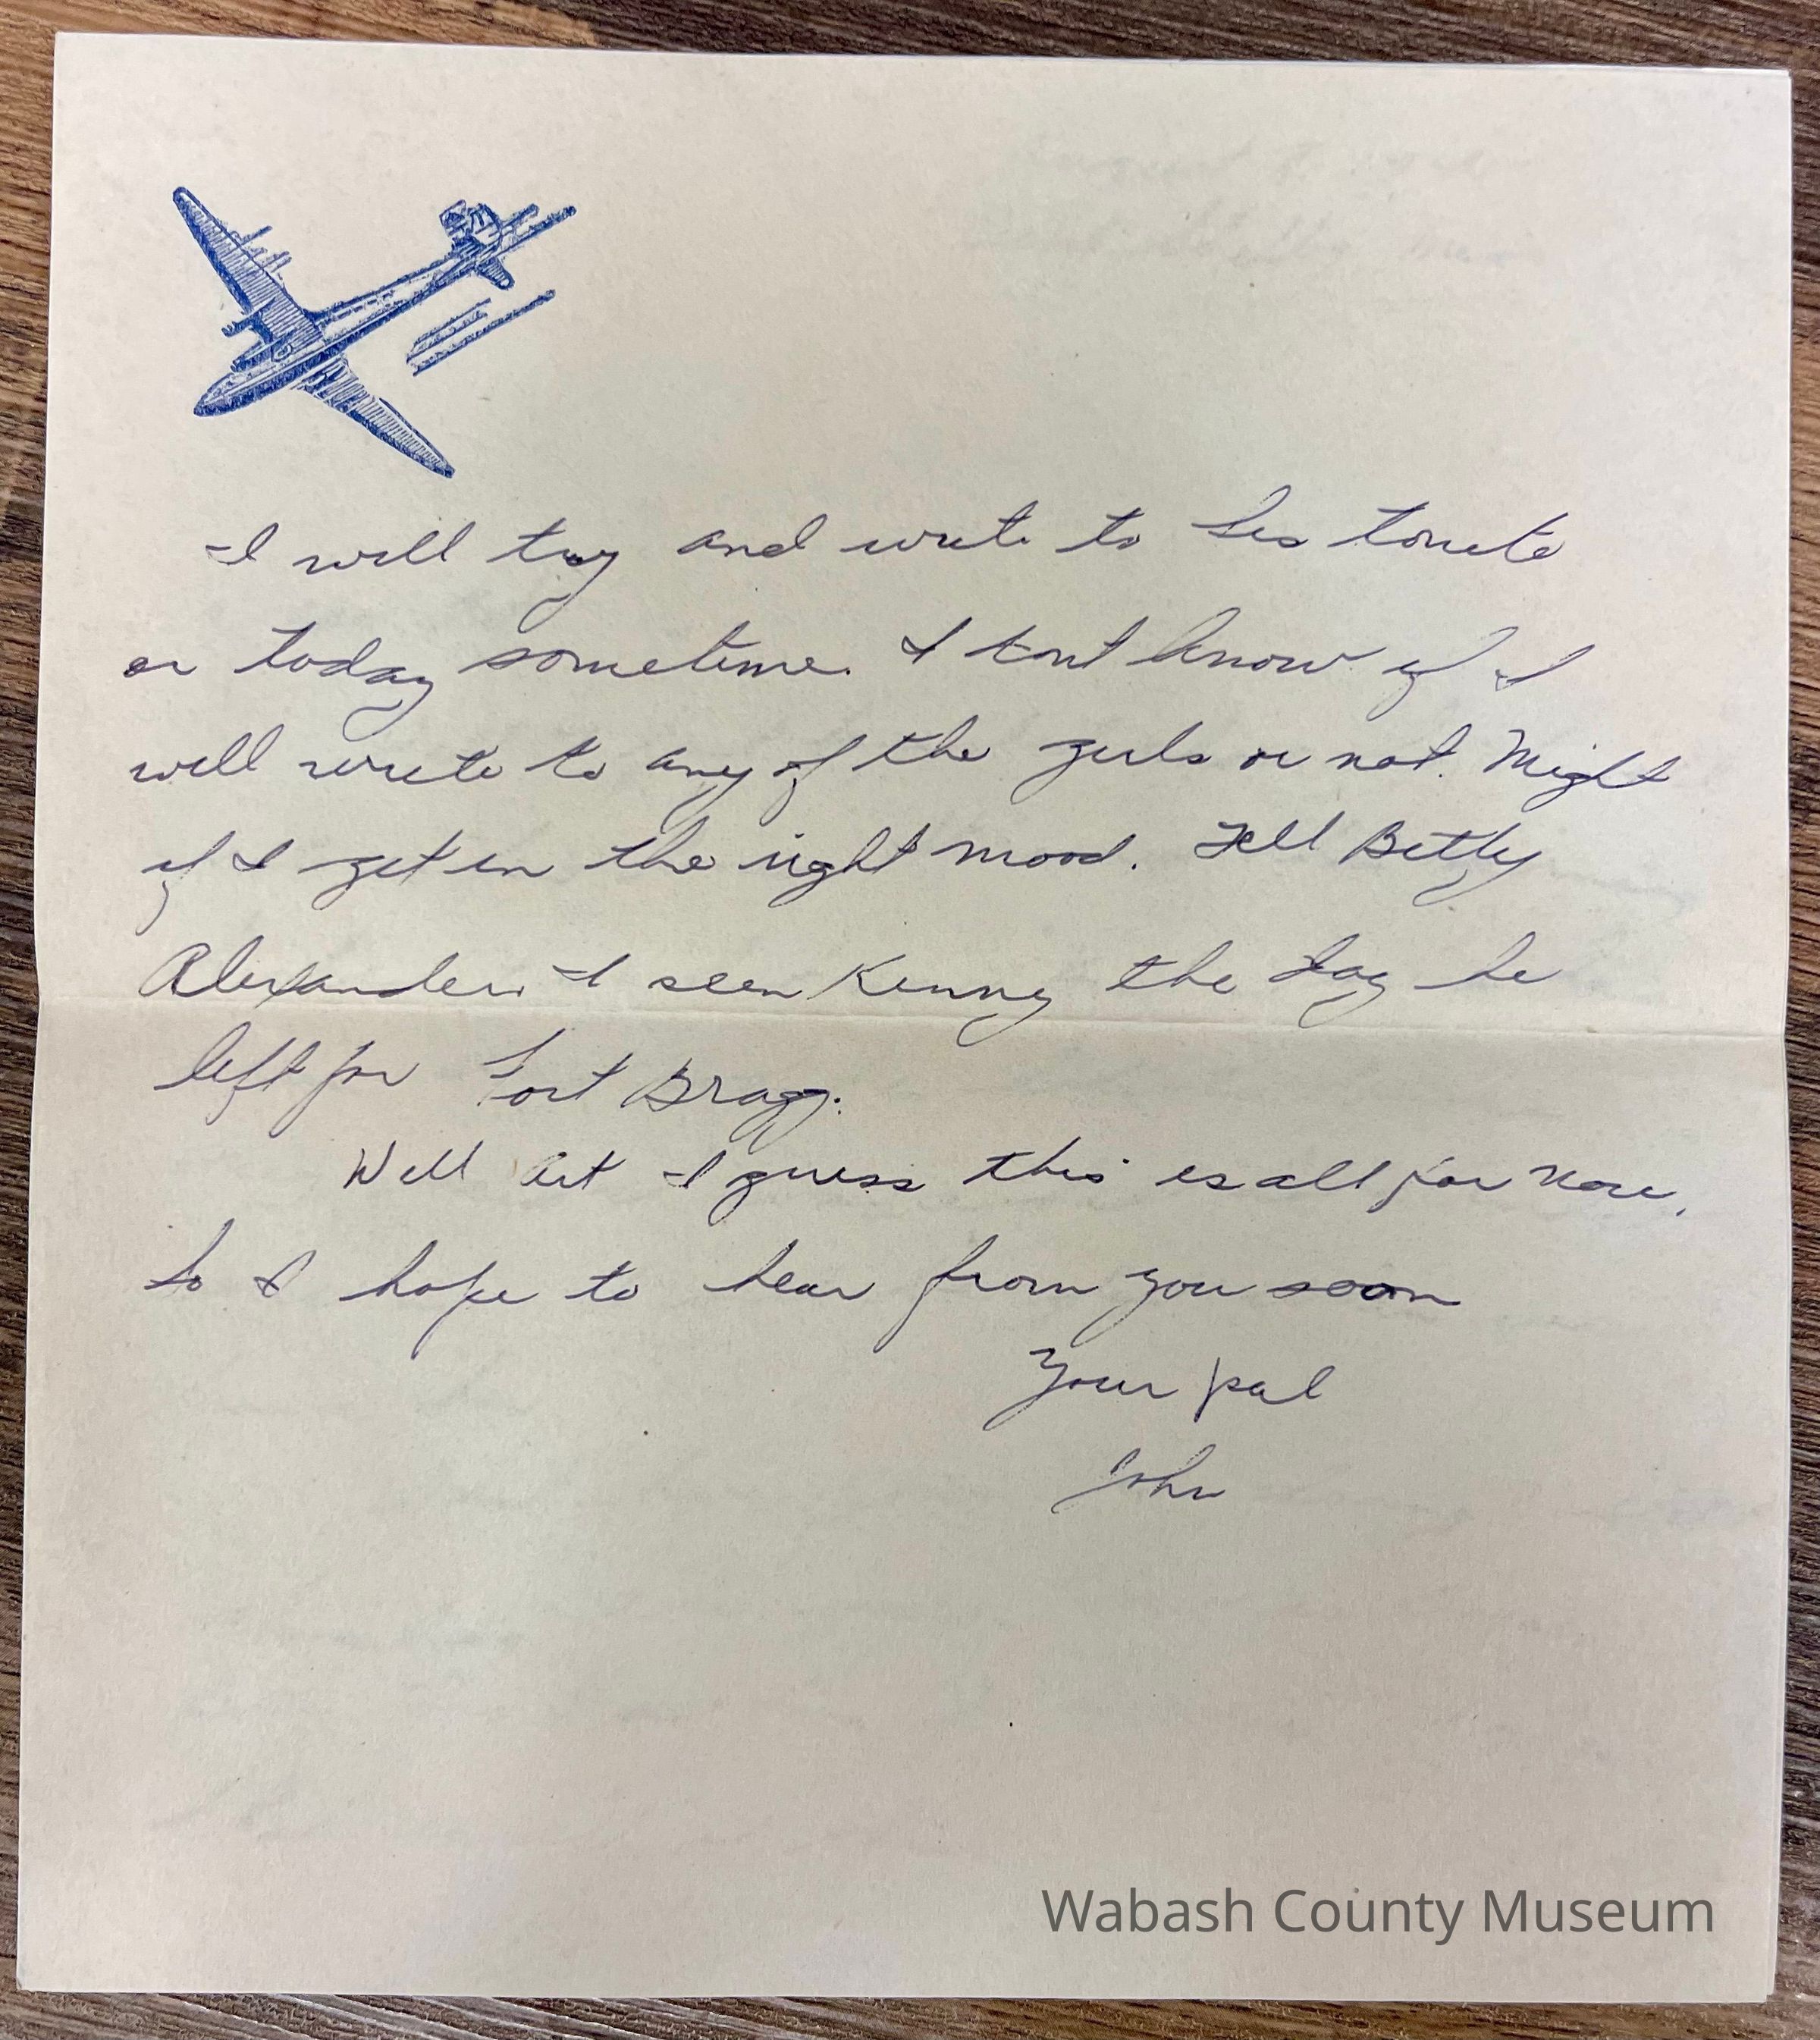 I will try and write to Sis tonite
or today sometime. I dont know if I
will write to any of the girls or not. Might
if I get in the right mood. Tell Betty
Alexander I seen Kenny the day he
left for Fort Bragg.
Well Art I guess this is all for now.
So I hope to hear from you soon
Your pal
John
Wabash County Museum